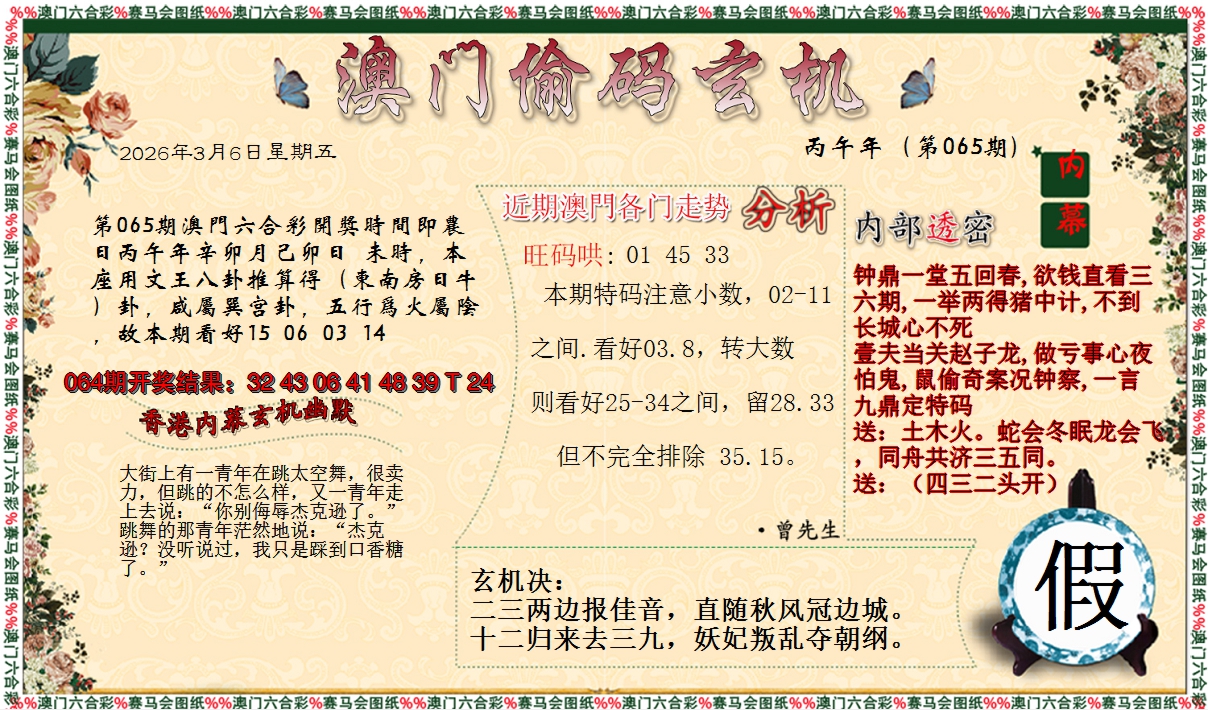 %%澳门六合彩%赛马会图纸%%澳门六合彩%赛马会图纸%%澳门六合彩%赛马会图纸%%澳门六合彩%赛马会图纸%%澳门六合彩%赛马会图纸%%澳门六合彩%赛马会图纸%%
澳门偷码玄机
2026年3月6日星期五
丙午年（第065期）
内
幕
第065期澳門六合彩開獎時間即農
日丙午年辛卯月己卯日 未時，本
座用文王八卦推算得（東南房日牛
）卦，咸屬巽宫卦，五行爲火屬陰
，故本期看好15 06 03 14
064期开奖结果：32 43 06 41 48 39 T 24
香港内幕玄机幽默
大街上有一青年在跳太空舞，很卖
力，但跳的不怎么样，又一青年走
上去说：“你别侮辱杰克逊了。”
跳舞的那青年茫然地说：“杰克
逊？没听说过，我只是踩到口香糖
了。”
近期澳門各门走势 分析
旺码哄：01 45 33
本期特码注意小数，02-11
之间.看好03.8，转大数
则看好25-34之间，留28.33
但不完全排除 35.15。
·曾先生
内部透密
钟鼎一堂五回春,欲钱直看三
六期,一举两得猪中计,不到
长城心不死
壹夫当关赵子龙,做亏事心夜
怕鬼,鼠偷奇案况钟察,一言
九鼎定特码
送：土木火。蛇会冬眠龙会飞
，同舟共济三五同。
送：（四三二头开）
玄机决：
二三两边报佳音，直随秋风冠边城。
十二归来去三九，妖妃叛乱夺朝纲。
假
%%澳门六合彩%赛马会图纸%%澳门六合彩%赛马会图纸%%澳门六合彩%赛马会图纸%%澳门六合彩%赛马会图纸%%澳门六合彩%赛马会图纸%%澳门六合彩%赛马会图纸%%